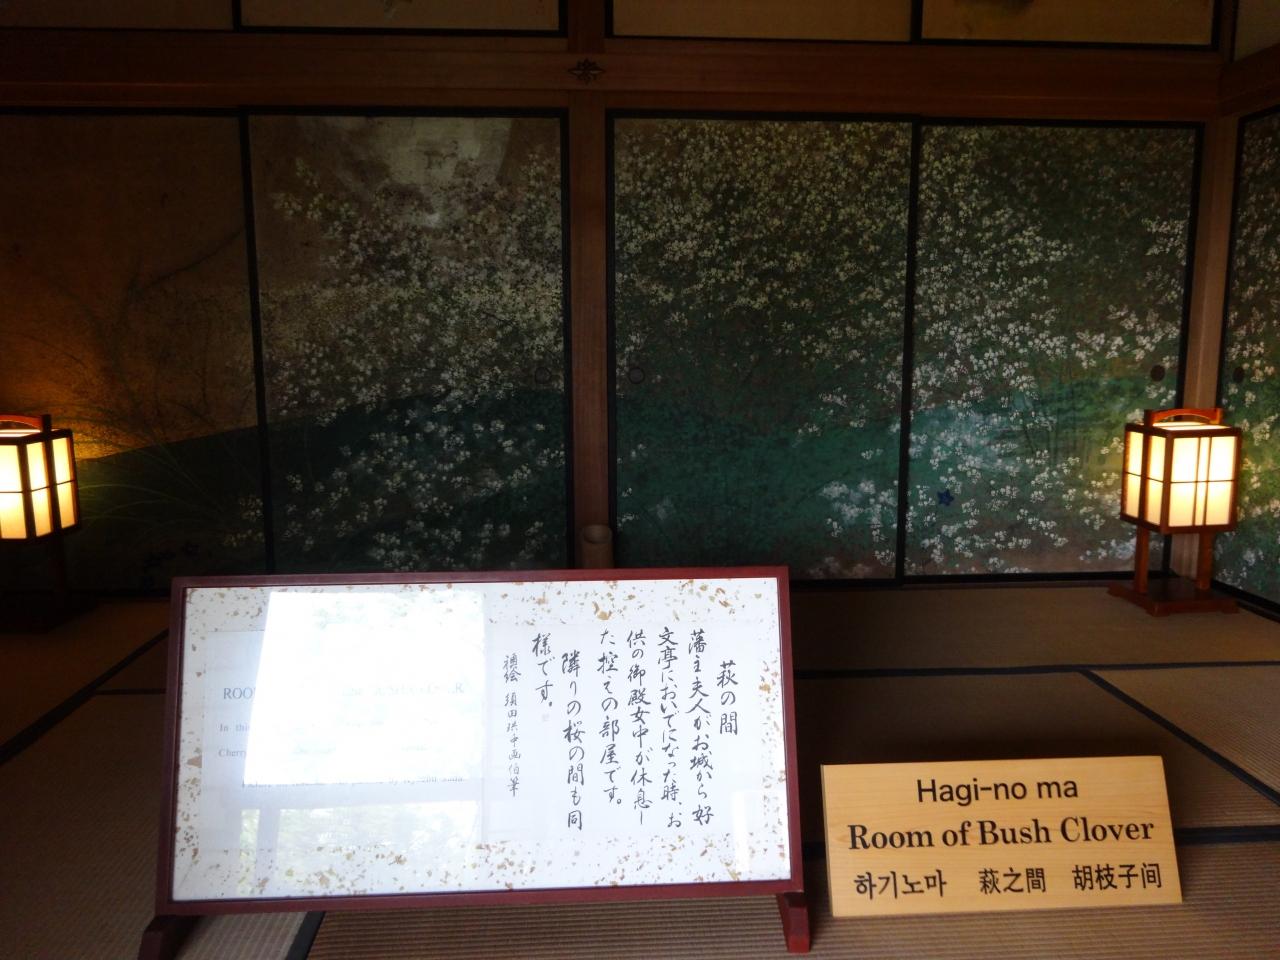 萩の間
藩主夫人がお城から好
文亭においでになった時、お
供の御殿女中が休息し
た控えの部屋です。
隣りの桜の間も同
様です。
襖絵 須田珙中画伯筆
In this
Cherry
Hagi-no ma
Room of Bush Clover
하기노마 萩之間 胡枝子间